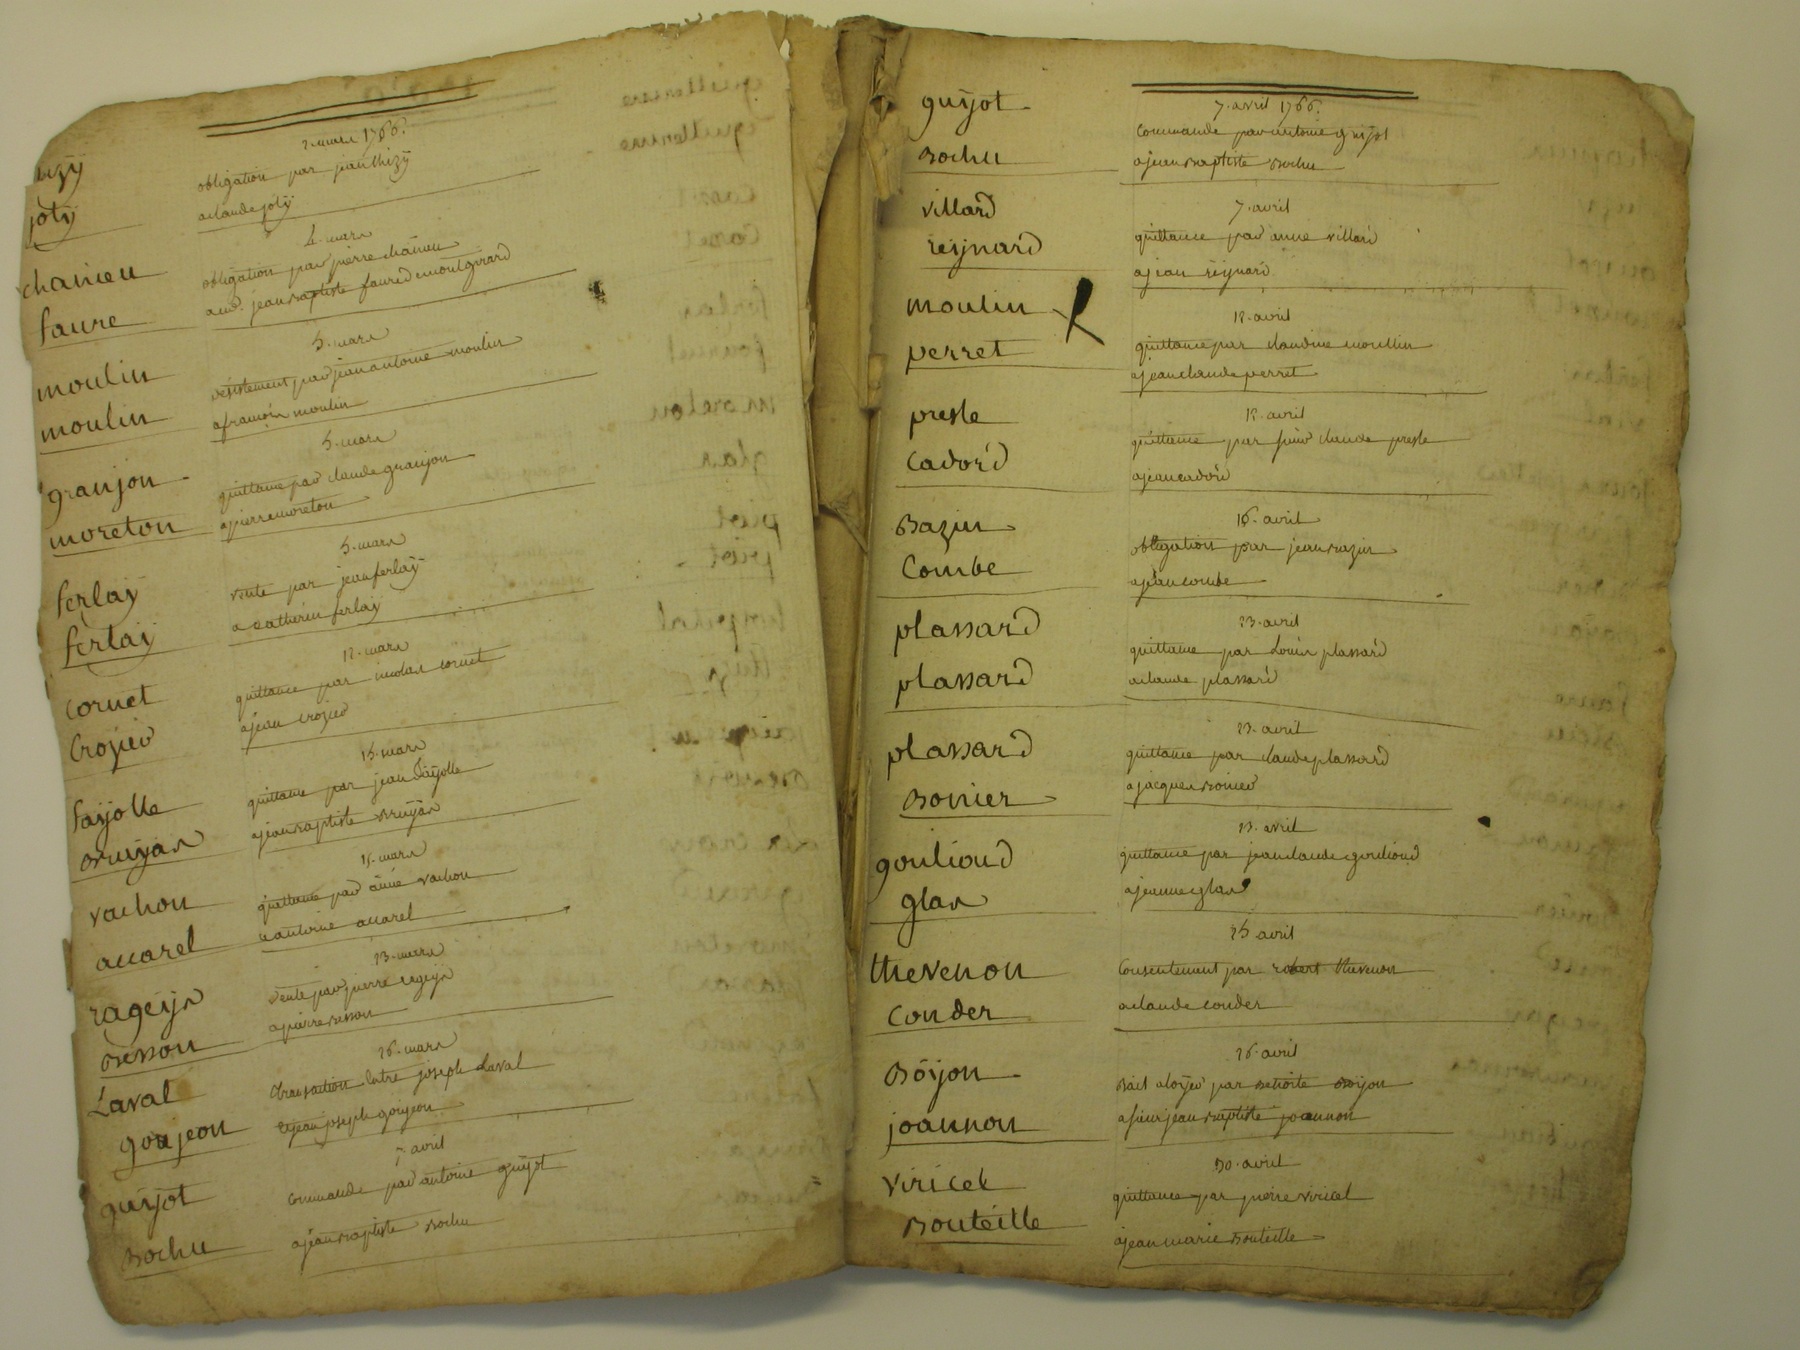 2. mars 1766.
thizÿ
obligation par jean thizÿ
jolÿ
a claude jolÿ
4. mars
chanieu
obligation par pierre chanieu
faure
a me. jean baptiste faure de montgirard
5. mars
moulin
désistement par jean antoine moulin
moulin
a françois moulin
5. mars
granjon
quittance par claude granjon
moreton
a pierre moreton
5. mars
ferlaÿ
vente par jean ferlaÿ
ferlaÿ
a catherin ferlaÿ
12. mars
cornet
quittance par nicolas cornet
Crozier
a jean crozier
15. mars
faÿolle
quittance par jean faÿolle
bruÿas
a jean baptiste bruÿas
15. mars
vachon
quittance par anne vachon
accarel
a antoine accarel
23. mars
rageÿs
vente par pierre rageÿs
besson
a pierre besson
26. mars
Laval
transaction entre joseph Laval
goujeon
et jean joseph goujeon
7 avril
guÿot
commande par antoine guÿot
bochu
a jean baptiste bochu
7. avril 1766.
guÿot
commande par antoine guÿot
bochu
a jean baptiste bochu
7. avril
villard
quittance par anne villard
reÿnard
a jean reÿnard
12. avril
moulin
quittance par claudine moulin
perret
a jean claude perret
12. avril
presle
quittance par sieur claude presle
Cadord
a jean cadord
16. avril
bazin
obligation par jean bazin
Combe
a jean combe
23. avril
plassard
quittance par Louis plassard
plassard
a claude plassard
23. avril
plassard
quittance par claude plassard
bonier
a jacques bonier
23. avril
goulioud
quittance par jean claude goulioud
glas
a jeanne glas
25 avril
thevenon
Consentement par robert thevenon
Couder
a claude couder
26. avril
böÿon
bail a loÿer par benoite boÿon
joannon
a sieur jean baptiste joannon
30. avril
viricel
quittance par pierre viricel
bouteille
a jean marie bouteille